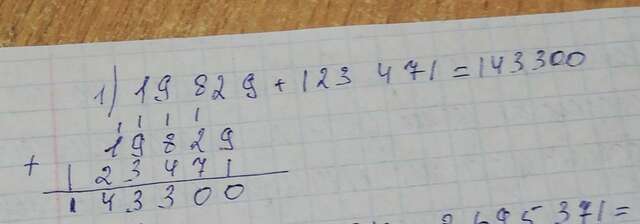 1) 19 829 + 123 471 = 143300
1 1 1 1
19829
+
123471
143300
2695371=